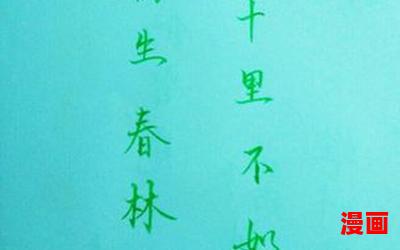 十里不如
生春林
漫画